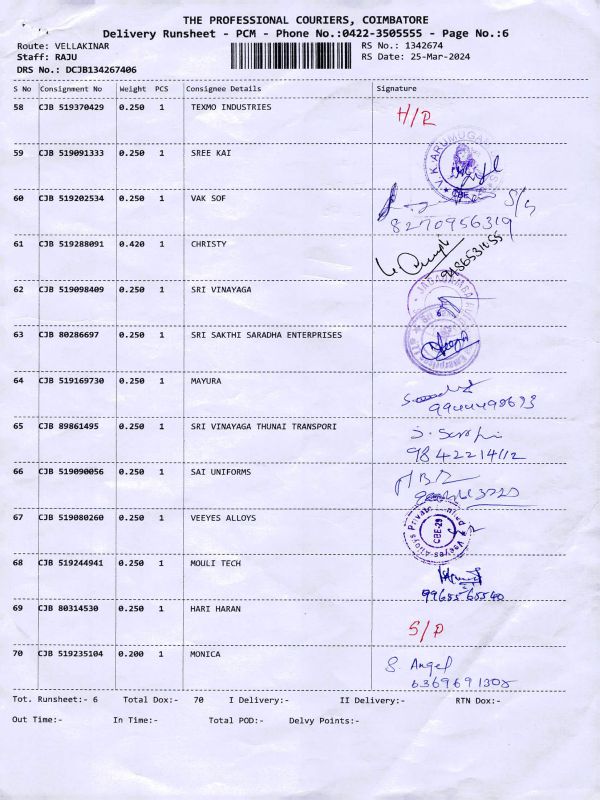 THE PROFESSIONAL COURIERS, COIMBATORE
Delivery Runsheet - PCM - Phone No.:0422-3505555 - Page No.:6
Route: VELLAKINAR RS No.: 1342674
Staff: RAJU RS Date: 25-Mar-2024
DRS No.: DCJB134267406
S No Consignment No Weight PCS Consignee Details Signature
58 CJB 519370429 0.250 1 TEXMO INDUSTRIES H/R
59 CJB 519091333 0.250 1 SREE KAI V.K. ARUMUGA
60 CJB 519202534 0.250 1 VAK SOF
8270956319
61 CJB 519288091 0.420 1 CHRISTY
9486531055
62 CJB 519098409 0.250 1 SRI VINAYAGA JAGADAMBA
63 CJB 80286697 0.250 1 SRI SAKTHI SARADHA ENTERPRISES
64 CJB 519169730 0.250 1 MAYURA
65 CJB 89861495 0.250 1 SRI VINAYAGA THUNAI TRANSPORI
9842214112
66 CJB 519090056 0.250 1 SAI UNIFORMS
67 CJB 519080260 0.250 1 VEEYES ALLOYS Veeyes Alloys Private CBE-29
68 CJB 519244941 0.250 1 MOULI TECH
69 CJB 80314530 0.250 1 HARI HARAN S/P
70 CJB 519235104 0.200 1 MONICA S. Angel
6369691308
Tot. Runsheet:- 6 Total Dox:- 70 I Delivery:- II Delivery:- RTN Dox:-
Out Time:- In Time:- Total POD:- Delvy Points:-